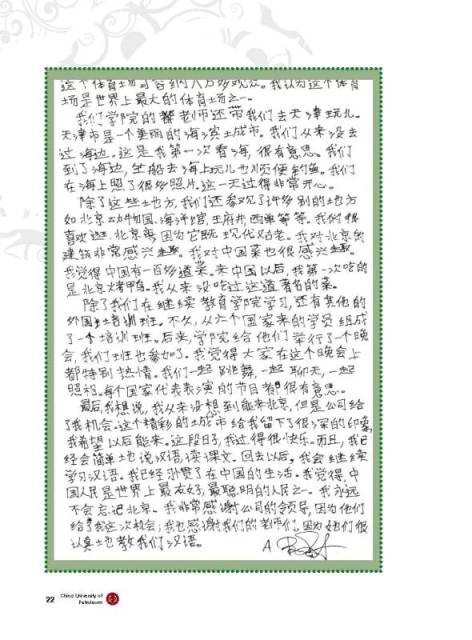 这个体育场可容纳八万多观众。我认为这个体育
场是世界上最大的体育场之一。
我们学院的老师还带我们去天津玩儿。
天津市是一个美丽的海滨城市。我们从来没去
过海边。这是我第一次看海，很有意思。我们
到了海边，坐船去海上玩儿也顺便钓鱼。我们
在海上照了很多照片。这一天过得非常开心。
除了这些地方，我们还参观了许多别的地方
如北京动物园、海洋馆、王府井、西单等等。我们很
喜欢逛北京 因为它既现代又古老。我对北京的
建筑非常感兴趣。我对中国菜也很感兴趣。
我觉得中国有一百多道菜。来中国以后，我第一次吃的
是北京烤鸭。我从来没吃过这道著名的菜。
除了我们在继续教育学院学习，还有其他的
外国培训班。不久，从六个国家来的学员组成
了一个培训班。后来，学院给他们举行了一个晚
会，我们班也参加了。我觉得大家在这个晚会上
都特别热情。我们一起跳舞，一起聊天，一起
照相。每个国家代表表演的节目都很有意思。
最后，我想说，我从来没想到能来北京，但是公司给
了我机会。这个精彩的城市给我留下了很深的印象，
我希望以后能来。这段日子，我过得很快乐。而且，我已
经会简单地说汉语，读课文。回去以后，我会继续
学习汉语。我已经习惯了在中国的生活。我觉得，中
国人民是世界上最友好，最聪明的人民之一。我永远
不会忘记北京。我非常感谢公司的领导，因为他们
给了我这次机会；我也感谢我们的老师们，因为她们很
认真地教我们汉语。
22 China University of
Petroleum